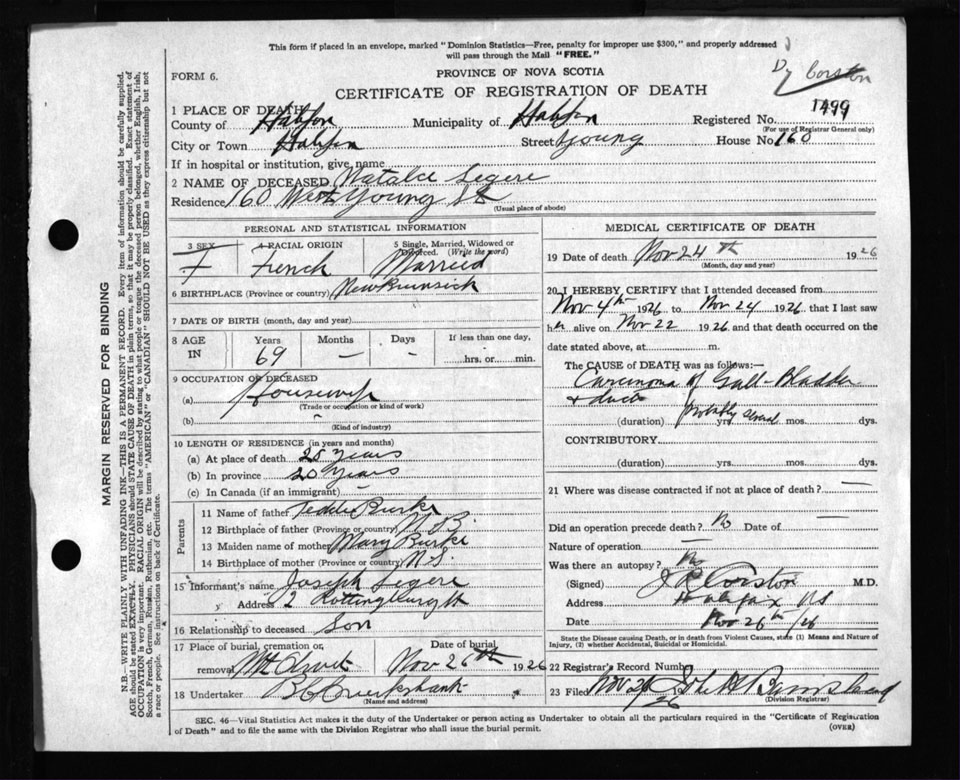 This form if placed in an envelope, marked "Dominion Statistics—Free, penalty for improper use $300," and properly addressed
will pass through the Mail "FREE."
FORM 6.
PROVINCE OF NOVA SCOTIA
Dr Corston
CERTIFICATE OF REGISTRATION OF DEATH
1499
1 PLACE OF DEATH
County of Halifax Municipality of Halifax Registered No.
(For use of Registrar General only)
City or Town Halifax Street Young House No. 160
If in hospital or institution, give name
2 NAME OF DECEASED Natalie Legere
Residence 160 West Young St
(Usual place of abode)
PERSONAL AND STATISTICAL INFORMATION
3 SEX 4 RACIAL ORIGIN 5 Single, Married, Widowed or
Divorced. (Write the word)
F French Married
6 BIRTHPLACE (Province or country) New Brunsick
7 DATE OF BIRTH (month, day and year)
8 AGE IN Years Months Days If less than one day,
69 — — hrs. or min.
9 OCCUPATION OF DECEASED
(a) Housewife
(Trade or occupation or kind of work)
(b)
(Kind of industry)
10 LENGTH OF RESIDENCE (in years and months)
(a) At place of death 25 Years
(b) In province 20 Years
(c) In Canada (if an immigrant) —
Parents
11 Name of father Teddie Burke
12 Birthplace of father (Province or country) N.B.
13 Maiden name of mother Mary Burke
14 Birthplace of mother (Province or country) N.S.
15 Informant's name Joseph Legere
Address 2
16 Relationship to deceased Son
17 Place of burial, cremation, or Date of burial
removal Mt Olivet Nov 26th 1926
18 Undertaker Cruikshank
(Name and address)
MEDICAL CERTIFICATE OF DEATH
19 Date of death Nov 24th 1926
(Month, day and year)
20 I HEREBY CERTIFY that I attended deceased from
Nov 4th 1926 to Nov 24 1926 that I last saw
her alive on Nov 22 1926 and that death occurred on the
date stated above, at m.
The CAUSE OF DEATH was as follows:—
Carcinoma of Gall-Bladder
& duct
(duration) Probably several yrs. mos. dys.
CONTRIBUTORY
(duration) yrs. mos. dys.
21 Where was disease contracted if not at place of death? —
Did an operation precede death? No Date of —
Nature of operation —
Was there an autopsy? No
(Signed) J R Corston M.D.
Address Halifax NS
Date Nov 26th/26
State the Disease causing Death, or in death from Violent Causes, state (1) Means and Nature of
Injury, (2) whether Accidental, Suicidal or Homicidal.
22 Registrar's Record Number
23 Filed Nov 26 1926 John H Barnstead
(Division Registrar)
SEC. 46—Vital Statistics Act makes it the duty of the Undertaker or person acting as Undertaker to obtain all the particulars required in the "Certificate of Registration
of Death" and to file the same with the Division Registrar who shall issue the burial permit.
(OVER)
MARGIN RESERVED FOR BINDING
N.B.—WRITE PLAINLY WITH UNFADING INK—THIS IS A PERMANENT RECORD. Every item of information should be carefully supplied.
AGE should be stated EXACTLY. PHYSICIANS should STATE CAUSE OF DEATH in plain terms, so that it may be properly classified. Exact statement of
OCCUPATION is very important. RACIAL ORIGIN will be described by stating to what people or tongue the deceased person belonged, whether English, Irish,
Scotch, French, German, Russian, Ruthenian, etc. The terms "AMERICAN" or "CANADIAN" SHOULD NOT BE USED as they express citizenship but not
a race or people. See instructions on back of Certificate.